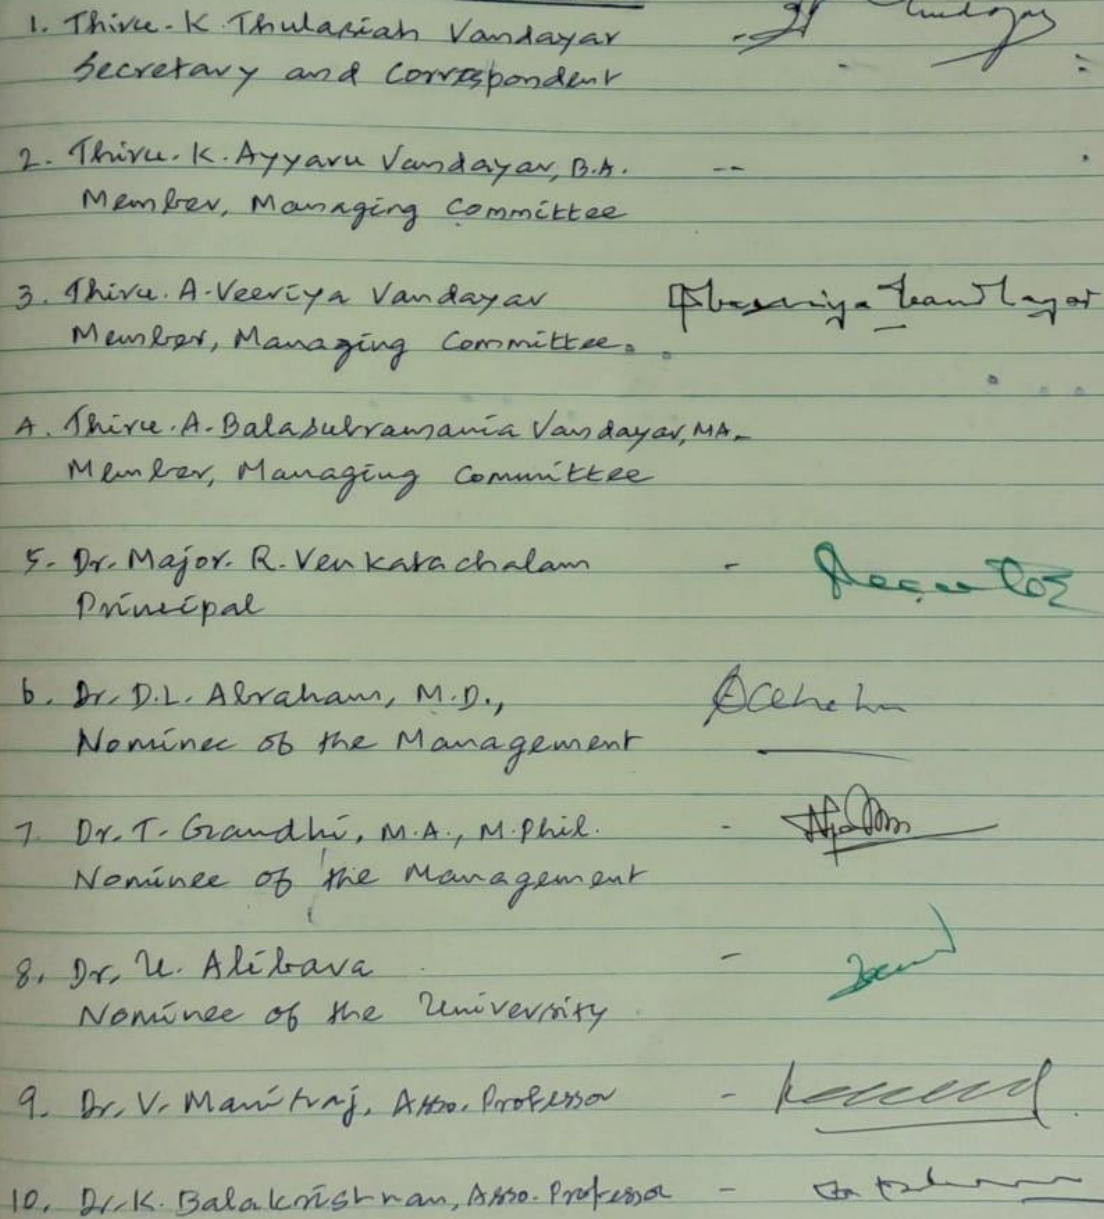 1. Thiru. K. Thulasiah Vandayar -
Secretary and Correspondent
2. Thiru. K. Ayyaru Vandayar, B.A. --
Member, Managing Committee
3. Thiru. A. Veeriya Vandayar
Member, Managing Committee.
4. Thiru. A. Balasubramania Vandayar, MA.
Member, Managing Committee
5. Dr. Major. R. Venkatachalam -
Principal
6. Dr. D.L. Abraham, M.D.,
Nominee of the Management
7. Dr. T. Gandhi, M.A., M.Phil. -
Nominee of the Management
8. Dr. U. Alibava -
Nominee of the University
9. Dr. V. Manitraj, Asso. Professor -
10. Dr. K. Balakrishnan, Asso. Professor -